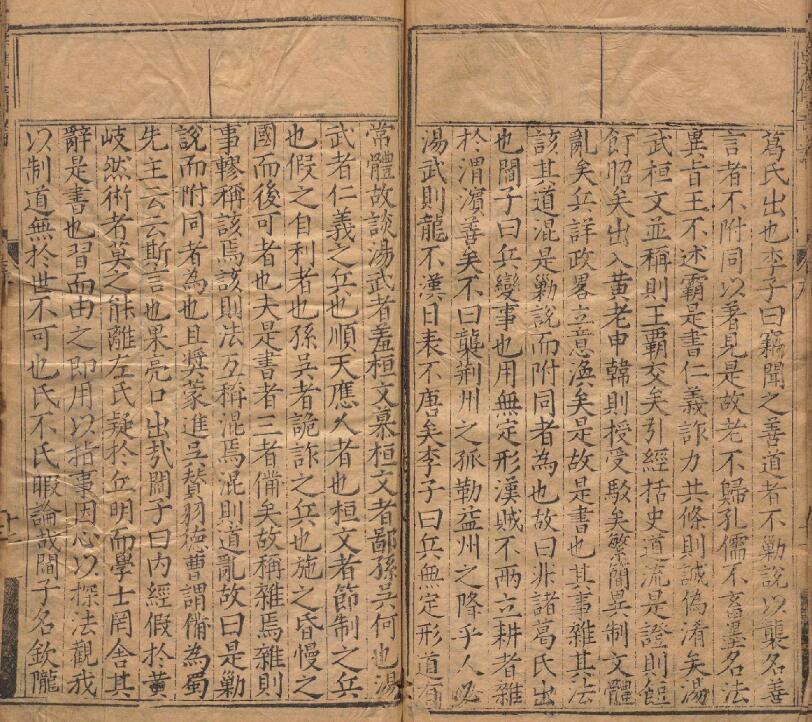 葛氏出也李子曰竊聞之善道者不勦說以襲名善
言者不附同以著見是故老不歸孔儒不畜墨名法
異旨王不述霸是書仁義詐力共條則誠偽淆矣湯
武桓文並稱則王霸交矣引經括史道流是證則飣
飣昭矣出入黃老申韓則授受駁矣繁簡異制文體
亂矣兵詳政畧立意漁矣是故是書也其事雜其法
該其道混是勦說而附同者為也故曰非諸葛氏出
也閻子曰兵變事也用無定形漢賊不兩立耕者雜
於渭濱善矣不曰襲荊州之孤勒益州之降乎人必
湯武則龍不漢日表不唐矣李子曰兵無定形道有
常體故談湯武者羞桓文慕桓文者鄙孫吳何也湯
武者仁義之兵也順天應人者也桓文者節制之兵
也假之自利者也孫吳者詭詐之兵也施之昏慢之
國而後可者也夫是書者三者備矣故稱雜焉雜則
事轇稱該焉該則法互稱混焉混則道亂故曰是勦
說而附同者為也且奬蒙進呈賛羽德曹謂備為蜀
先主云云斯言也果亮口出哉閻子曰內經假於黃
岐然術者莫之能離左氏疑於丘明而學士罔舍其
辭是書也習而由之即用以指事因心以探法觀我
以制道無於世不可也氏不氏暇論哉閻子名欽隴
十二